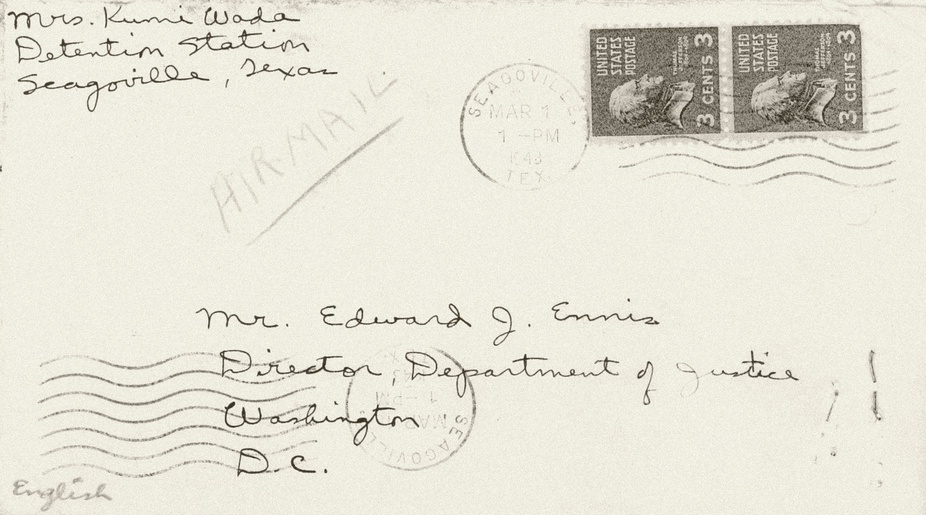 Mrs. Kumi Wada
Detention Station
Seagoville, Texas
AIR-MAIL
SEAGOVILLE,
MAR 1
1 -PM
1943
TEX.
UNITED STATES POSTAGE
3 CENTS 3
UNITED STATES POSTAGE
3 CENTS 3
Mr. Edward J. Ennis
Director, Department of Justice
Washington
D.C.
SEAGOVILLE
MAR
1 -PM
English